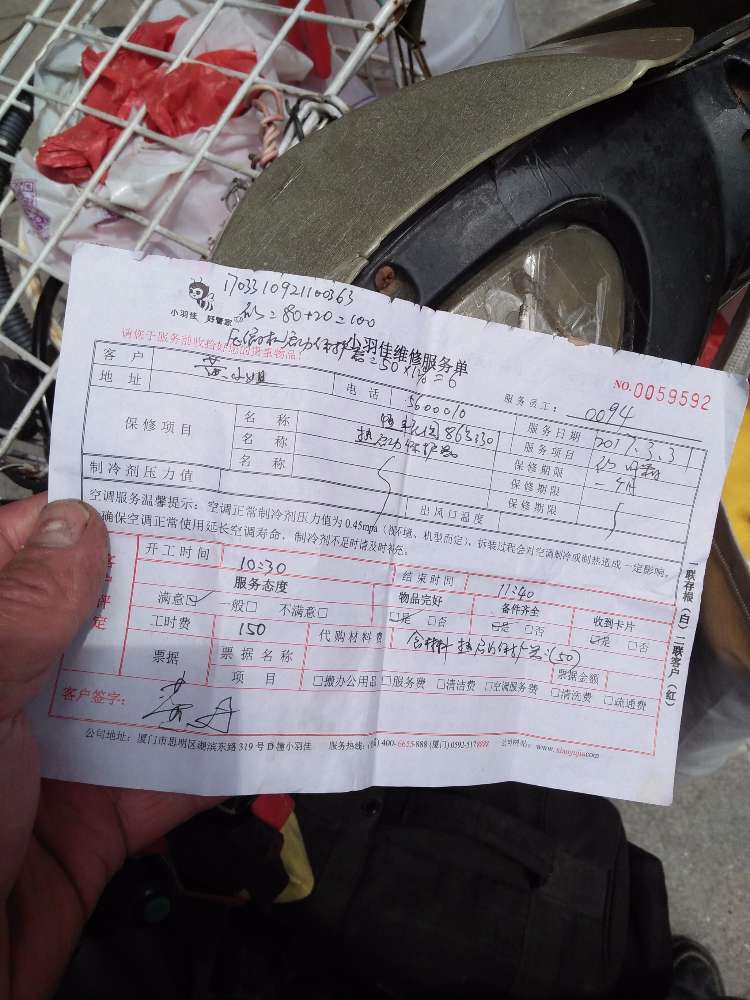 1703310921100363
小羽佳 好管家
=80+20=100
小羽佳维修服务单
=50
请您于服务前收拾好您的贵重物品!
NO.0059592
客户 小姐 电话 服务员工: 0094
地址 5600010 服务日期 2017.3.31
保修项目 名称 服务项目
名称 热启动保护器 保修期限 一个月
名称 保修期限
保修期限
制冷剂压力值 出风口温度
空调服务温馨提示:空调正常制冷剂压力值为0.45mpa(视环境、机型而定),拆装过程会对空调制冷或制热造成一定影响。
确保空调正常使用延长空调寿命,制冷剂不足时请及时补充。
开工时间 10:30 结束时间 11:40
服务态度 物品完好 备件齐全 收到卡片
满意☑ 一般□ 不满意□ ☑是 □否 ☑是 □否 ☑是 □否
工时费 150 代购材料费 含材料 热启动保护器(50)
票据 票据名称 票据金额
项目 □搬办公用品 □服务费 □清洁费 □空调服务费 □清洗费 □疏通费
客户签字:
公司地址:厦门市思明区湖滨东路319号D幢小羽佳 服务热线: 400-6655-888 (厦门) 0592-517 公司网站: www.xiaoyujia.com
一联存根(白)二联客户(红)